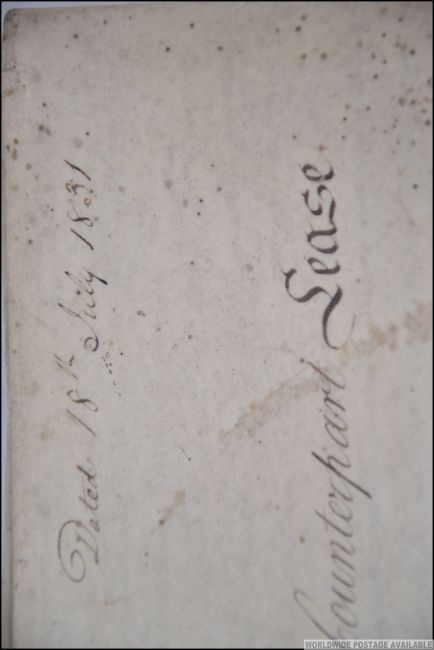 Dated 18th July 1831.
Counterpart Lease
WORLDWIDE POSTAGE AVAILABLE